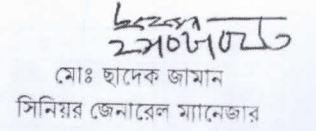 মোঃ ছাদেক জামান
সিনিয়র জেনারেল ম্যানেজার